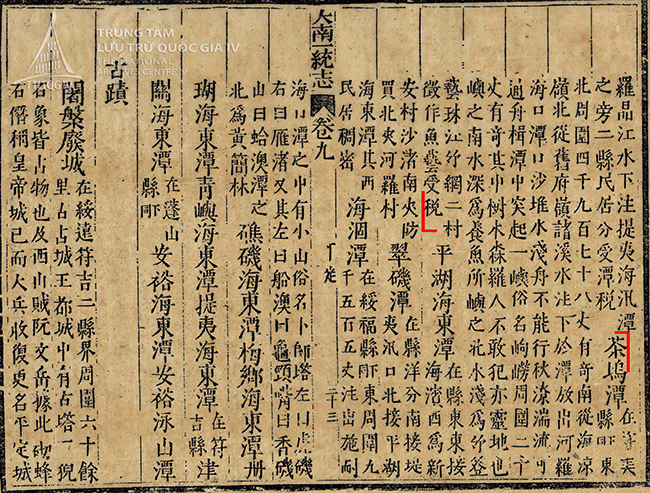 TRUNG TÂM
LƯU TRỮ QUỐC GIA IV
THE NATIONAL
ARCHIVES CENTRE IV
羅品江水下注提夷海汛潭
之旁二縣民居分受潭稅
茶塢潭
在符美
縣𨚗東
北周圍四千九百七十八丈有奇南從海凉
嶺北從舊府嶺諸溪水注下於潭放出河羅
海口潭口沙堆水淺舟不能行秋潦湍流可
通舟楫潭中突起一嶼俗名峋嶗周圍二十
丈有奇其中树木森羅人不敢犯亦靈地也
嶼之南水深為養魚所嶼之北水淺為竹登
藝珠江竹網二村
徵作魚藝受稅
平湖海東潭
在縣東東接
海濱西為新
安村沙渚南夾防
買北夾河羅村
翠磯潭
在縣洋分南接端
夷汛口北接平湖
海東潭其西
民居稠密
海涸潭
在綏福縣𨚗東周圍九
千五百五丈注出施耐
大南一統志 卷九
三十三
海口潭之中有小山俗名卜師塔左曰虎磯
右曰雁渚又其左曰船澳曰龜頭嘴曰香磯
山曰蛤澳潭之
北為黃簡林
礁磯海東潭梅鄉海東潭册
瑚海東潭青嶼海東潭提夷海東潭
在符
吉縣
津
關海東潭
在蓬山
縣𨚗
安裕海東潭安裕泳山潭
古蹟
闍槃廢城
在綏遠符吉二縣界周圍六十餘
里古占城王都城中有古塔二猊
石象皆占物也及西山賊阮文岳據此砌蜂
石僭稱皇帝城已而大兵收復更名平定城